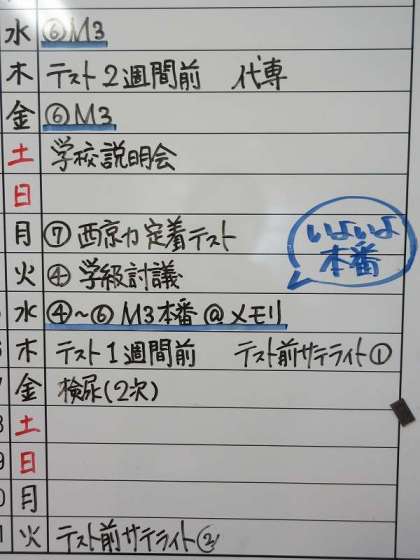 水 ⑥M3
木 テスト2週間前 代専
金 ⑥M3
土 学校説明会
日
月 ⑦ 西京力定着テスト
いよいよ
本番
火 ④ 学級討議
水 ④~⑥ M3本番@メモリ
木 テスト1週間前 テスト前サテライト①
金 検尿(2次)
土
日
月
火 テスト前サテライト②